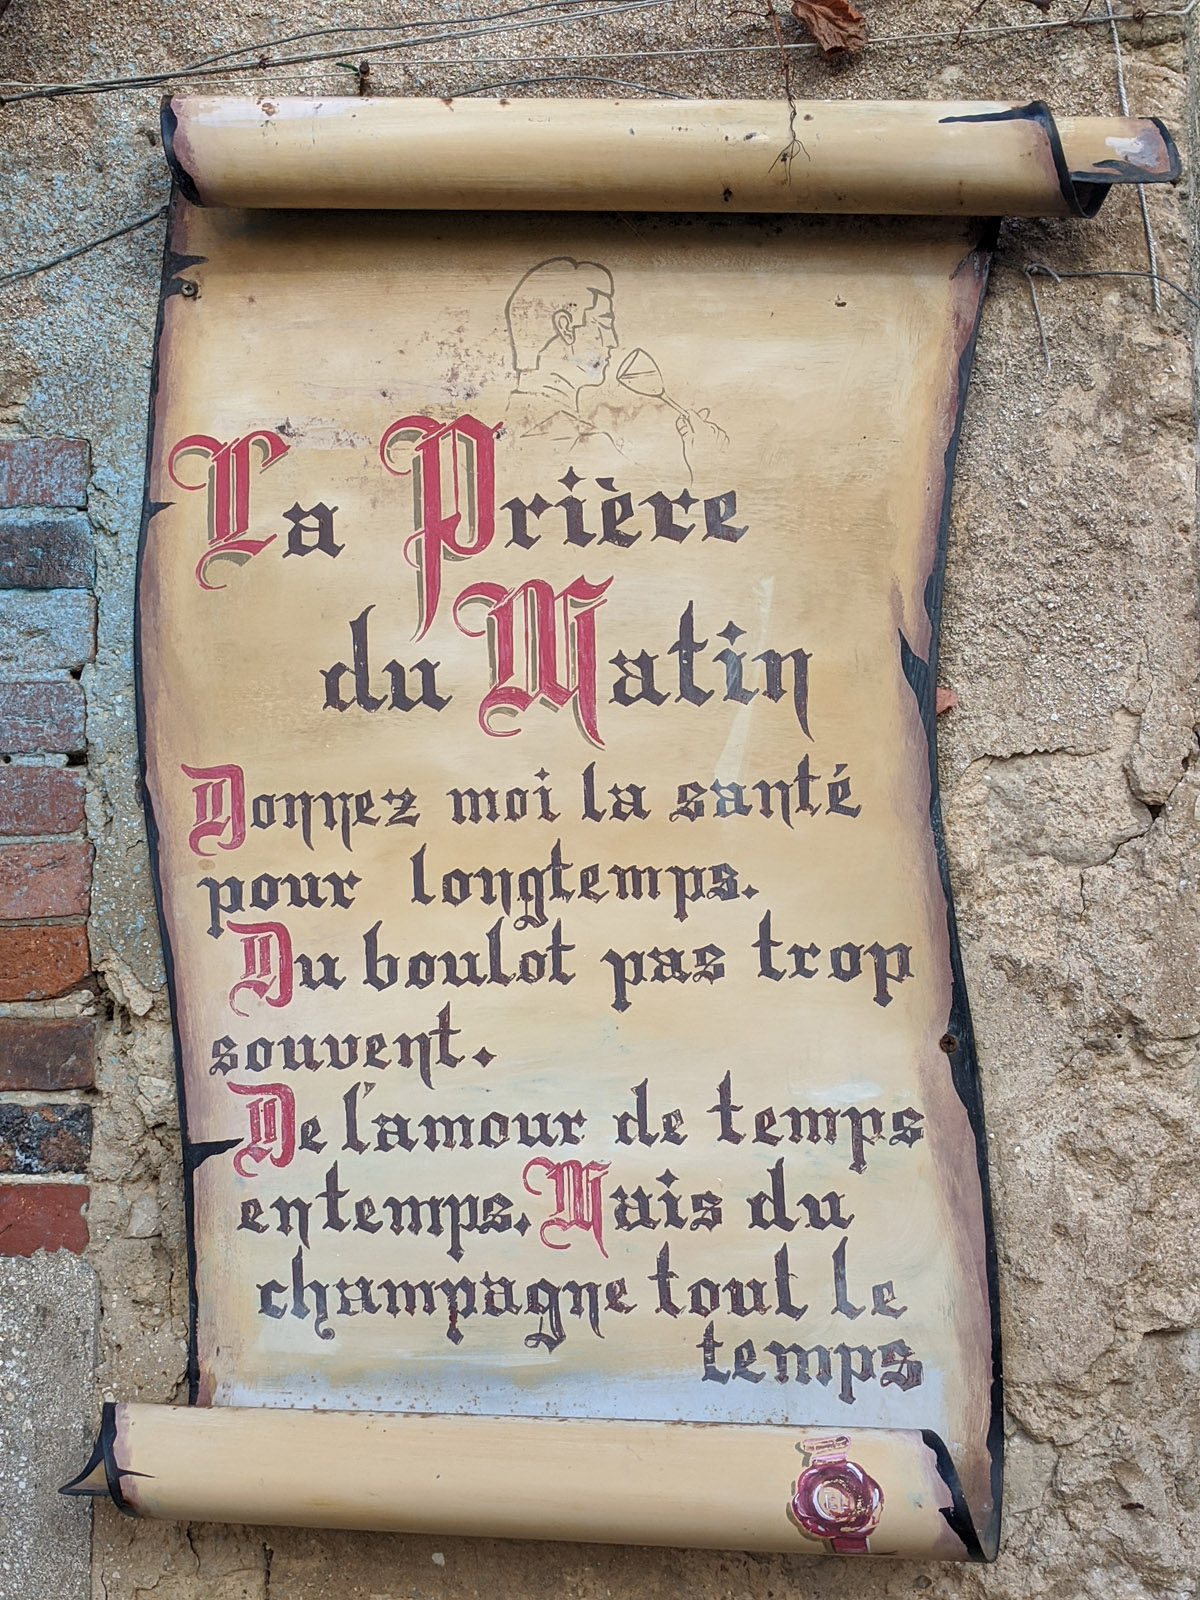 La Prière
du Matin
Donnez moi la santé
pour longtemps.
Du boulot pas trop
souvent.
De l'amour de temps
en temps. Mais du
champagne tout le
temps